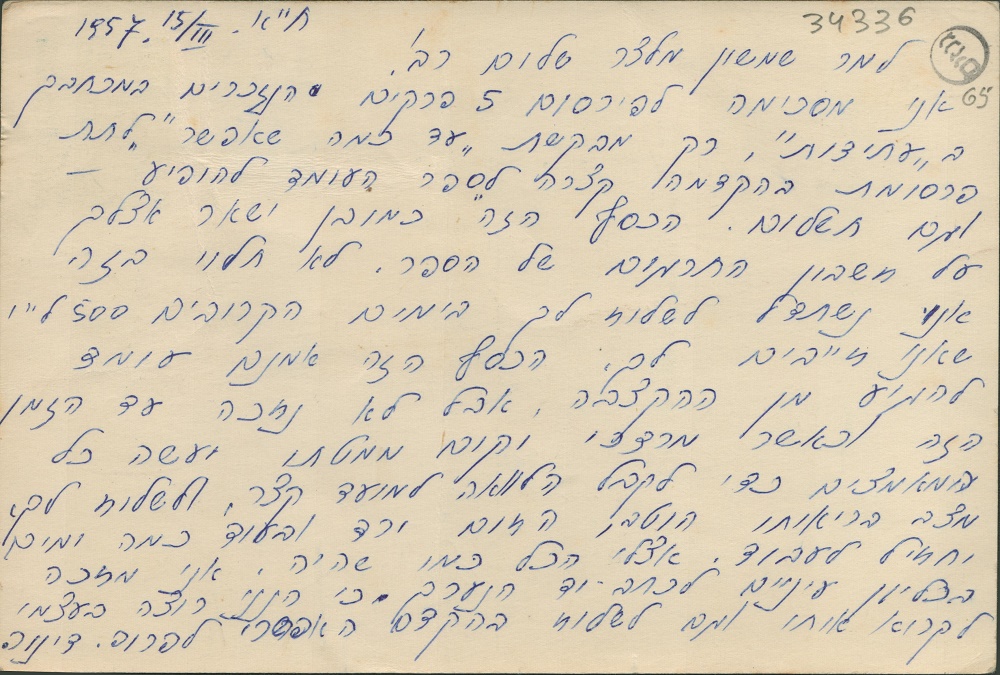 34336
ת"א. 15/III. 1957
65
למר שמשון מלצר שלום רב!
אני מסכימה לפירסום 5 פרקים הנזכרים במכתבך
ב"עתידות", רק מבקשת "עד כמה שאפשר" לתת
פרסומת בהקדמה קצרה לספר העומד להופיע –
וגם תשלום. הכסף "הזה" כמובן ישאר אצלך
על חשבון התרגום של הספר. לא תלוי בזה
אנו נשתדל לשלוח לך בימים הקרובים 500 ל"י
שאנו חייבים לך. הכסף הזה אמנם עומד
להגיע מן ההקצבה, אבל לא נחכה עד הזמן
הזה וכאשר מרדכי יקום ממטתו יעשה כל
המאמצים כדי לקבל הלואה למועד קצר, ולשלוח לך.
מצב בריאותו הוטב, החום ירד ובעוד כמה ימים
יתחיל לעבוד. אצלי הכל כמו שהיה. אני מחכה
בכליון עינים לכתב-יד הנערב כי הנני רוצה בעצמי
לקרוא אותו וגם לשלוח בהקדם האפשרי לפרופ. דינור.